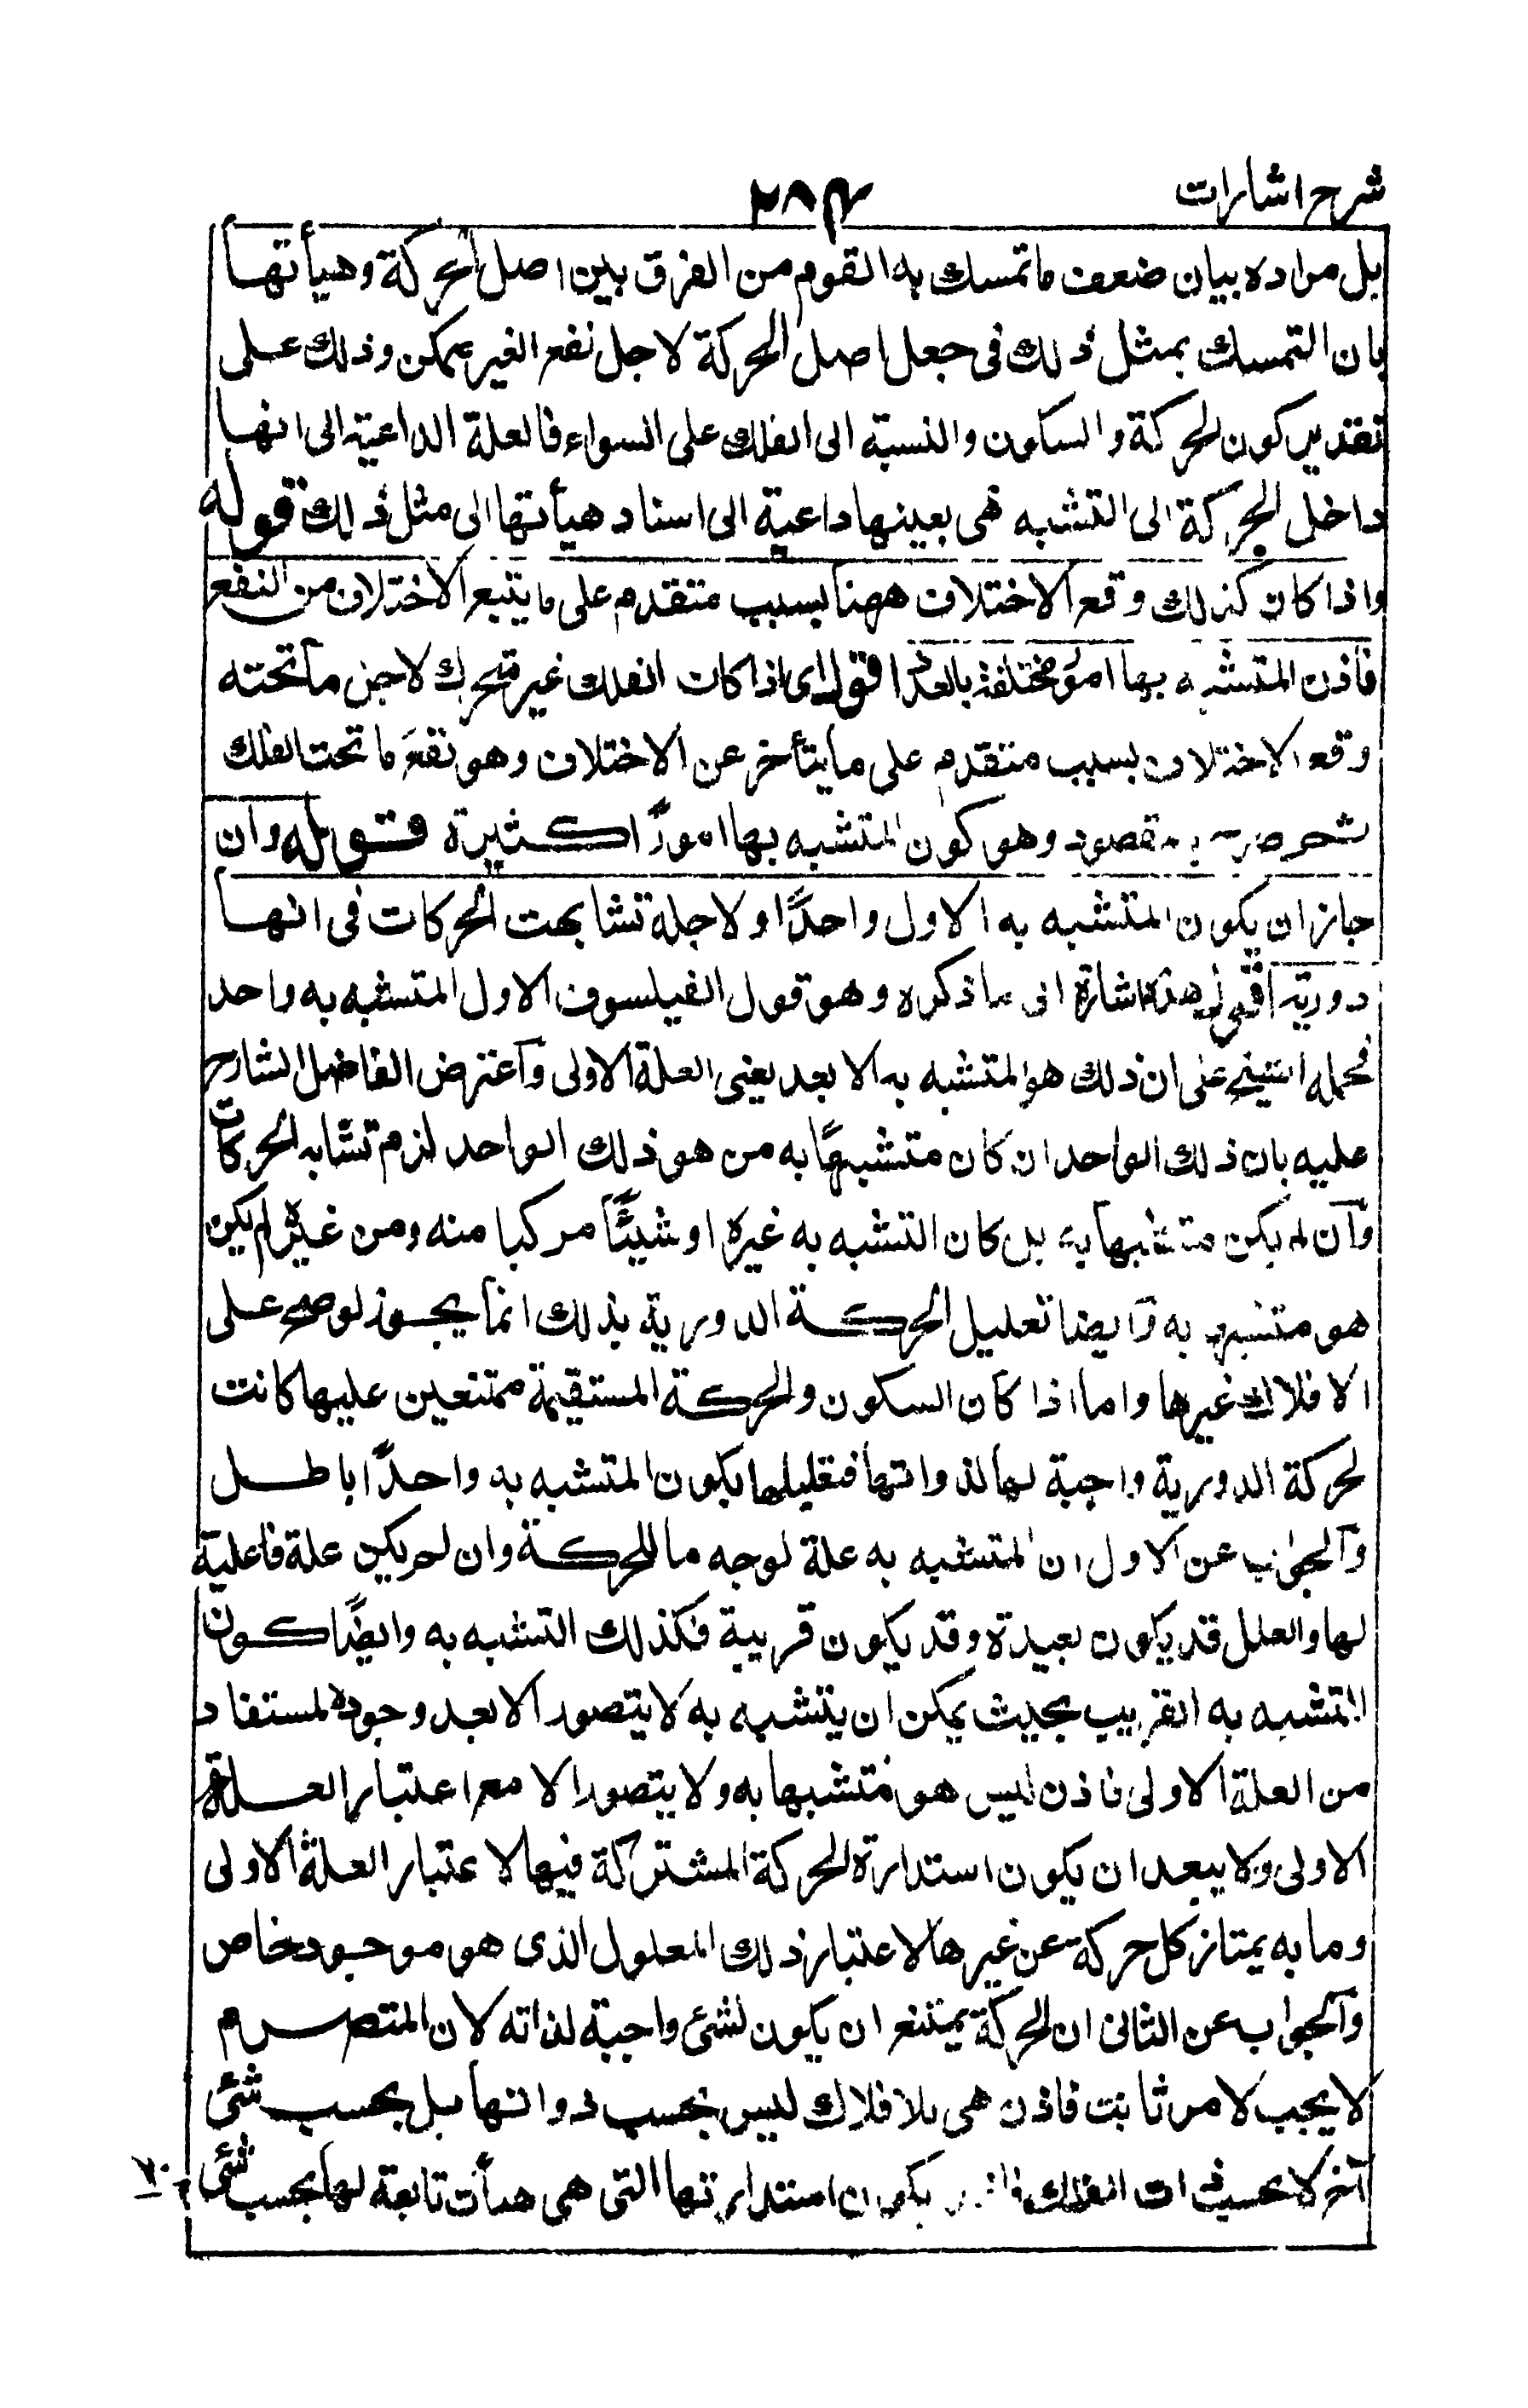 شرح اشارات ٢٨٤
بل مراده بيان ضعف ما تمسك به القوم من الفرق بين اصل الحركة وهيأتها
بان التمسك بمثل ذلك فى جعل اصل الحركة لاجل نفع الغير ممكن وذلك على
تقدير كون الحركة والسكون والنسبة الى الفلك على السواء فالعلة الداعية الى انها
داخل الحركة الى التشبه هى بعينها داعية الى اسناد هيأتها الى مثل ذلك قوله
واذا كان كذلك وقع الاختلاف ههنا بسبب متقدم على ما يتبع الاختلاف من النفع
فاذن المتشبه بها امور مختلفة بالعدد اقول اى اذا كان الفلك غير متحرك لاجل ما تحته
وقع الاختلاف بسبب متقدم على ما يتأخر عن الاختلاف وهو نفع ما تحت الفلك
مقصود وهو كون المتشبه بها امورًا كثيرة قوله وان
جاز ان يكون المتشبه به الاول واحدًا ولاجله تشابهت الحركات فى انها
دورية اقول هذه اشارة الى ما ذكره وهو قول الفيلسوف الاول المتشبه به واحد
فحمله الشيخ على ان ذلك هو المتشبه به الابعد يعنى العلة الاولى وآعترض الفاضل الشارح
عليه بان ذلك الواحد ان كان متشبهًا به من هو ذلك الواحد لزم تشابه الحركات
وآن لم يكن متشبها به بل كان التشبه به غيره او شيئًا مركبا منه ومن غيره لم يكن
هو متشبها به وآيضا تعليل الحركة الدورية بذلك انما يجوز لو صح على
الافلاك غيرها واما اذا كان السكون والحركة المستقيمة ممتنعين عليها كانت
لحركة الدورية واجبة لها لذواتها فتعليلها بكون المتشبه به واحدًا باطل
وآلجواب عن الاول ان المتشبه به علة لوجه ما للحركة وان لم يكن علة فاعلية
لها والعلل قد يكون بعيدة وقد يكون قريبة فكذلك التشبه به وايضًا كون
المتشبه به القريب بحيث يمكن ان يتشبه به لا يتصور الا بعد وجوده المستفاد
من العلة الاولى فاذن ليس هو متشبها به ولا يتصور الا مع اعتبار العلة
الاولى ولا يبعد ان يكون استدارة الحركة المشتركة فيها لا عتبار العلة الاولى
وما به يمتاز كل حركة عن غيرها لاعتبار ذلك المعلول الذى هو موجود خاص
وآلجواب عن الثانى ان الحركة يمتنع ان يكون لشئ واجبة لذاته لان المتصرم
لا يجب لامر ثابت فاذن هى للافلاك ليس بحسب ذواتها بل بحسب شئ
آخر لا بحسب ذات الفلك يكون استدارتها التى هى هيأت تابعة لها بحسب شئ